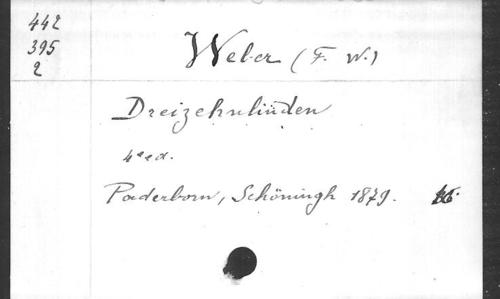 442
395
2
Weber (F. W.)
Dreizehnlinden
4e ed.
Paderborn, Schöningh 1879.